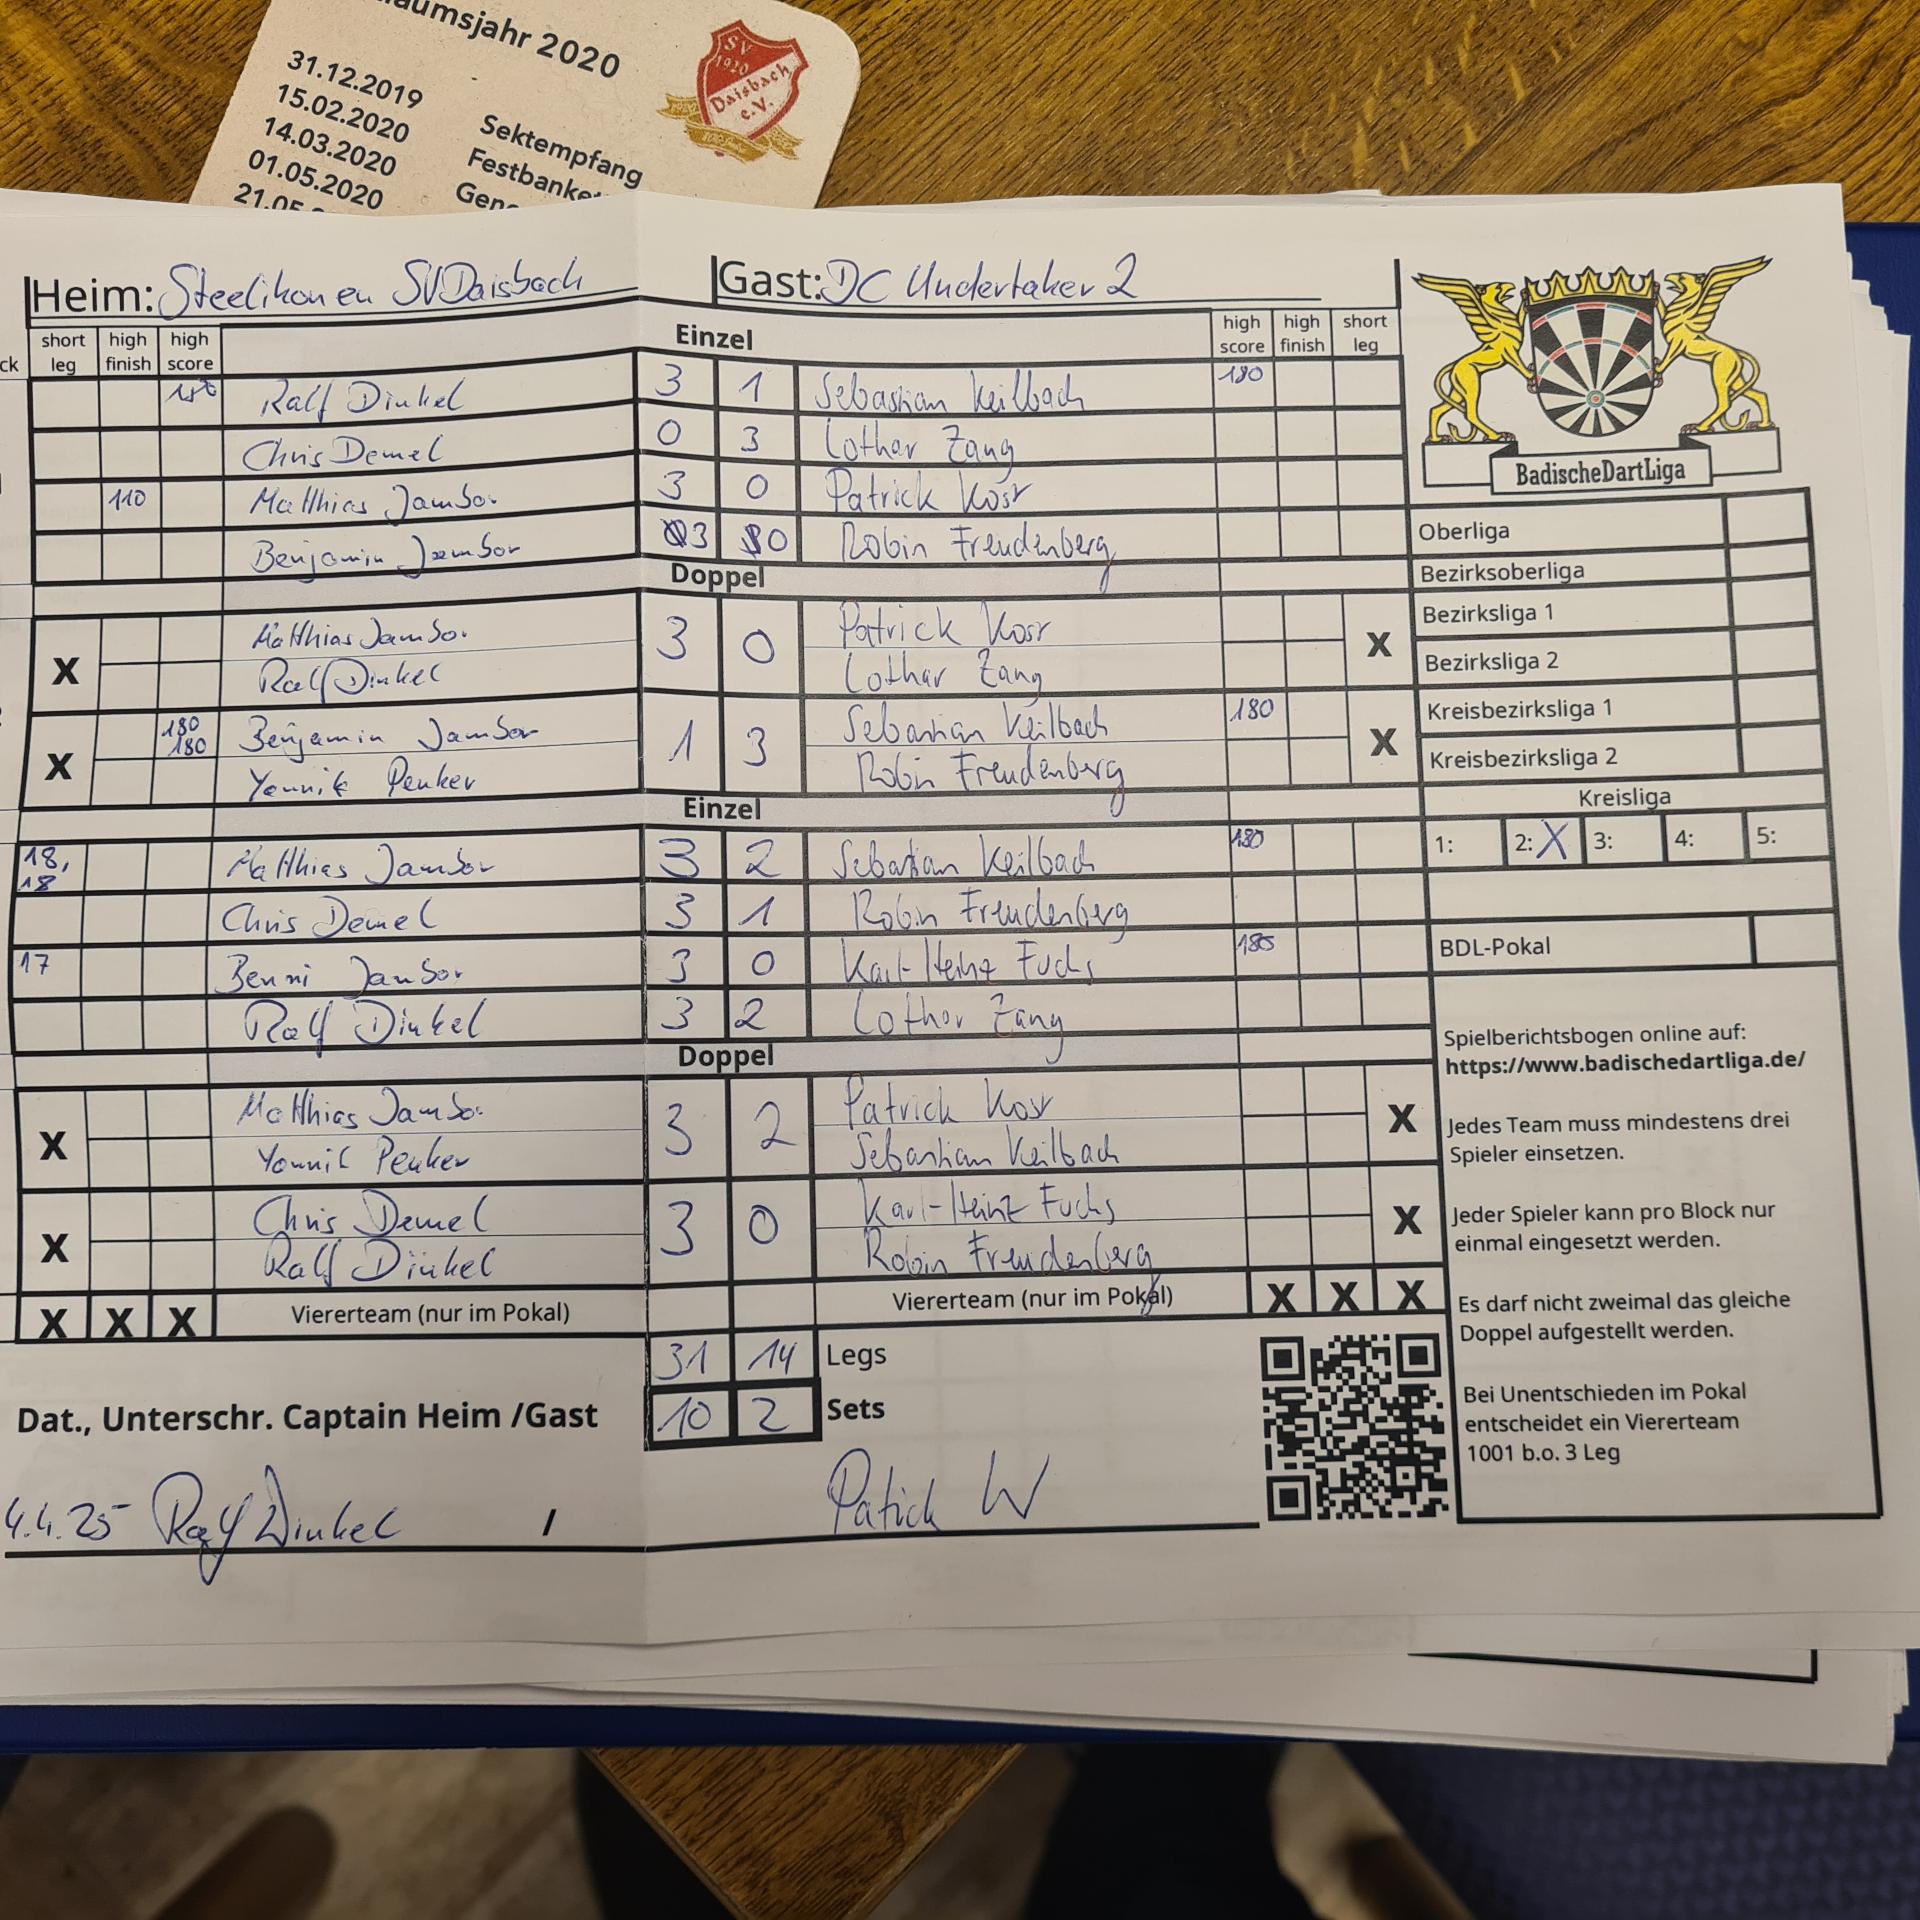 aumsjahr 2020
31.12.2019
15.02.2020 Sektempfang
14.03.2020 Festbanke
01.05.2020 Gen
21.05.2
SV
1920
Daisbach
e.V.
Heim: Steelikonen SV Daisbach Gast: DC Undertaker 2
ck short leg high finish high score Einzel high score high finish short leg
180 Ralf Dinkel 3 1 Sebastian Keilbach 180
Chris Demel 0 3 Lothar Zang
110 Matthias Jambor 3 0 Patrick Kosr
Benjamin Jambor 3 0 Robin Freudenberg
Doppel
Matthias Jambor 3 0 Patrick Kosr
X Ralf Dinkel Lothar Zang X
180 180 Benjamin Jambor 1 3 Sebastian Keilbach 180
X Yannik Penker Robin Freudenberg X
Einzel
18, 18 Matthias Jambor 3 2 Sebastian Keilbach 180
Chris Demel 3 1 Robin Freudenberg
17 Benni Jambor 3 0 Karl-Heinz Fuchs
Ralf Dinkel 3 2 Lothar Zang
Doppel
Matthias Jambor 3 2 Patrick Kosr
X Yannik Penker Sebastian Keilbach X
Chris Demel 3 0 Karl-Heinz Fuchs
X Ralf Dinkel Robin Freudenberg X
X X X Viererteam (nur im Pokal) Viererteam (nur im Pokal) X X X
31 14 Legs
10 2 Sets
Dat., Unterschr. Captain Heim /Gast
4.4.25 Ralf Dinkel / Patrick
BadischeDartLiga
Oberliga
Bezirksoberliga
Bezirksliga 1
Bezirksliga 2
Kreisbezirksliga 1
Kreisbezirksliga 2
Kreisliga
1: 2: X 3: 4: 5:
BDL-Pokal
Spielberichtsbogen online auf:
https://www.badischedartliga.de/
Jedes Team muss mindestens drei
Spieler einsetzen.
Jeder Spieler kann pro Block nur
einmal eingesetzt werden.
Es darf nicht zweimal das gleiche
Doppel aufgestellt werden.
Bei Unentschieden im Pokal
entscheidet ein Viererteam
1001 b.o. 3 Leg